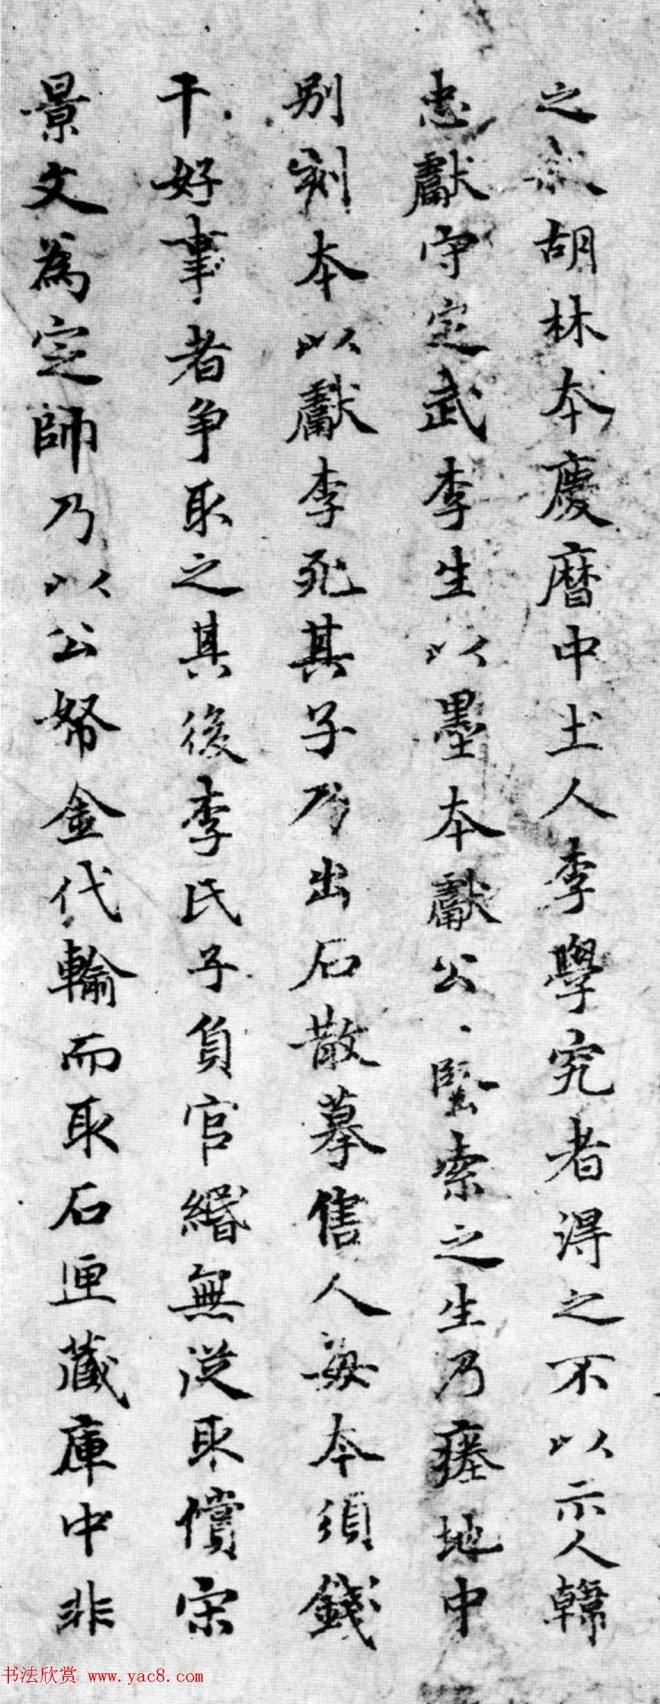 之胡林本慶曆中土人李學究者淂之不以示人韓
忠獻守定武李生以墨本獻公、堅索之生乃瘞地中
别刻本以獻李死其子乃出石散摹售人每本須錢
干好事者争取之其後李氏子負官緡無從取償宋
景文為定帥乃以公帑金代輸而取石匣藏庫中非
书法欣赏 www.yac8.com